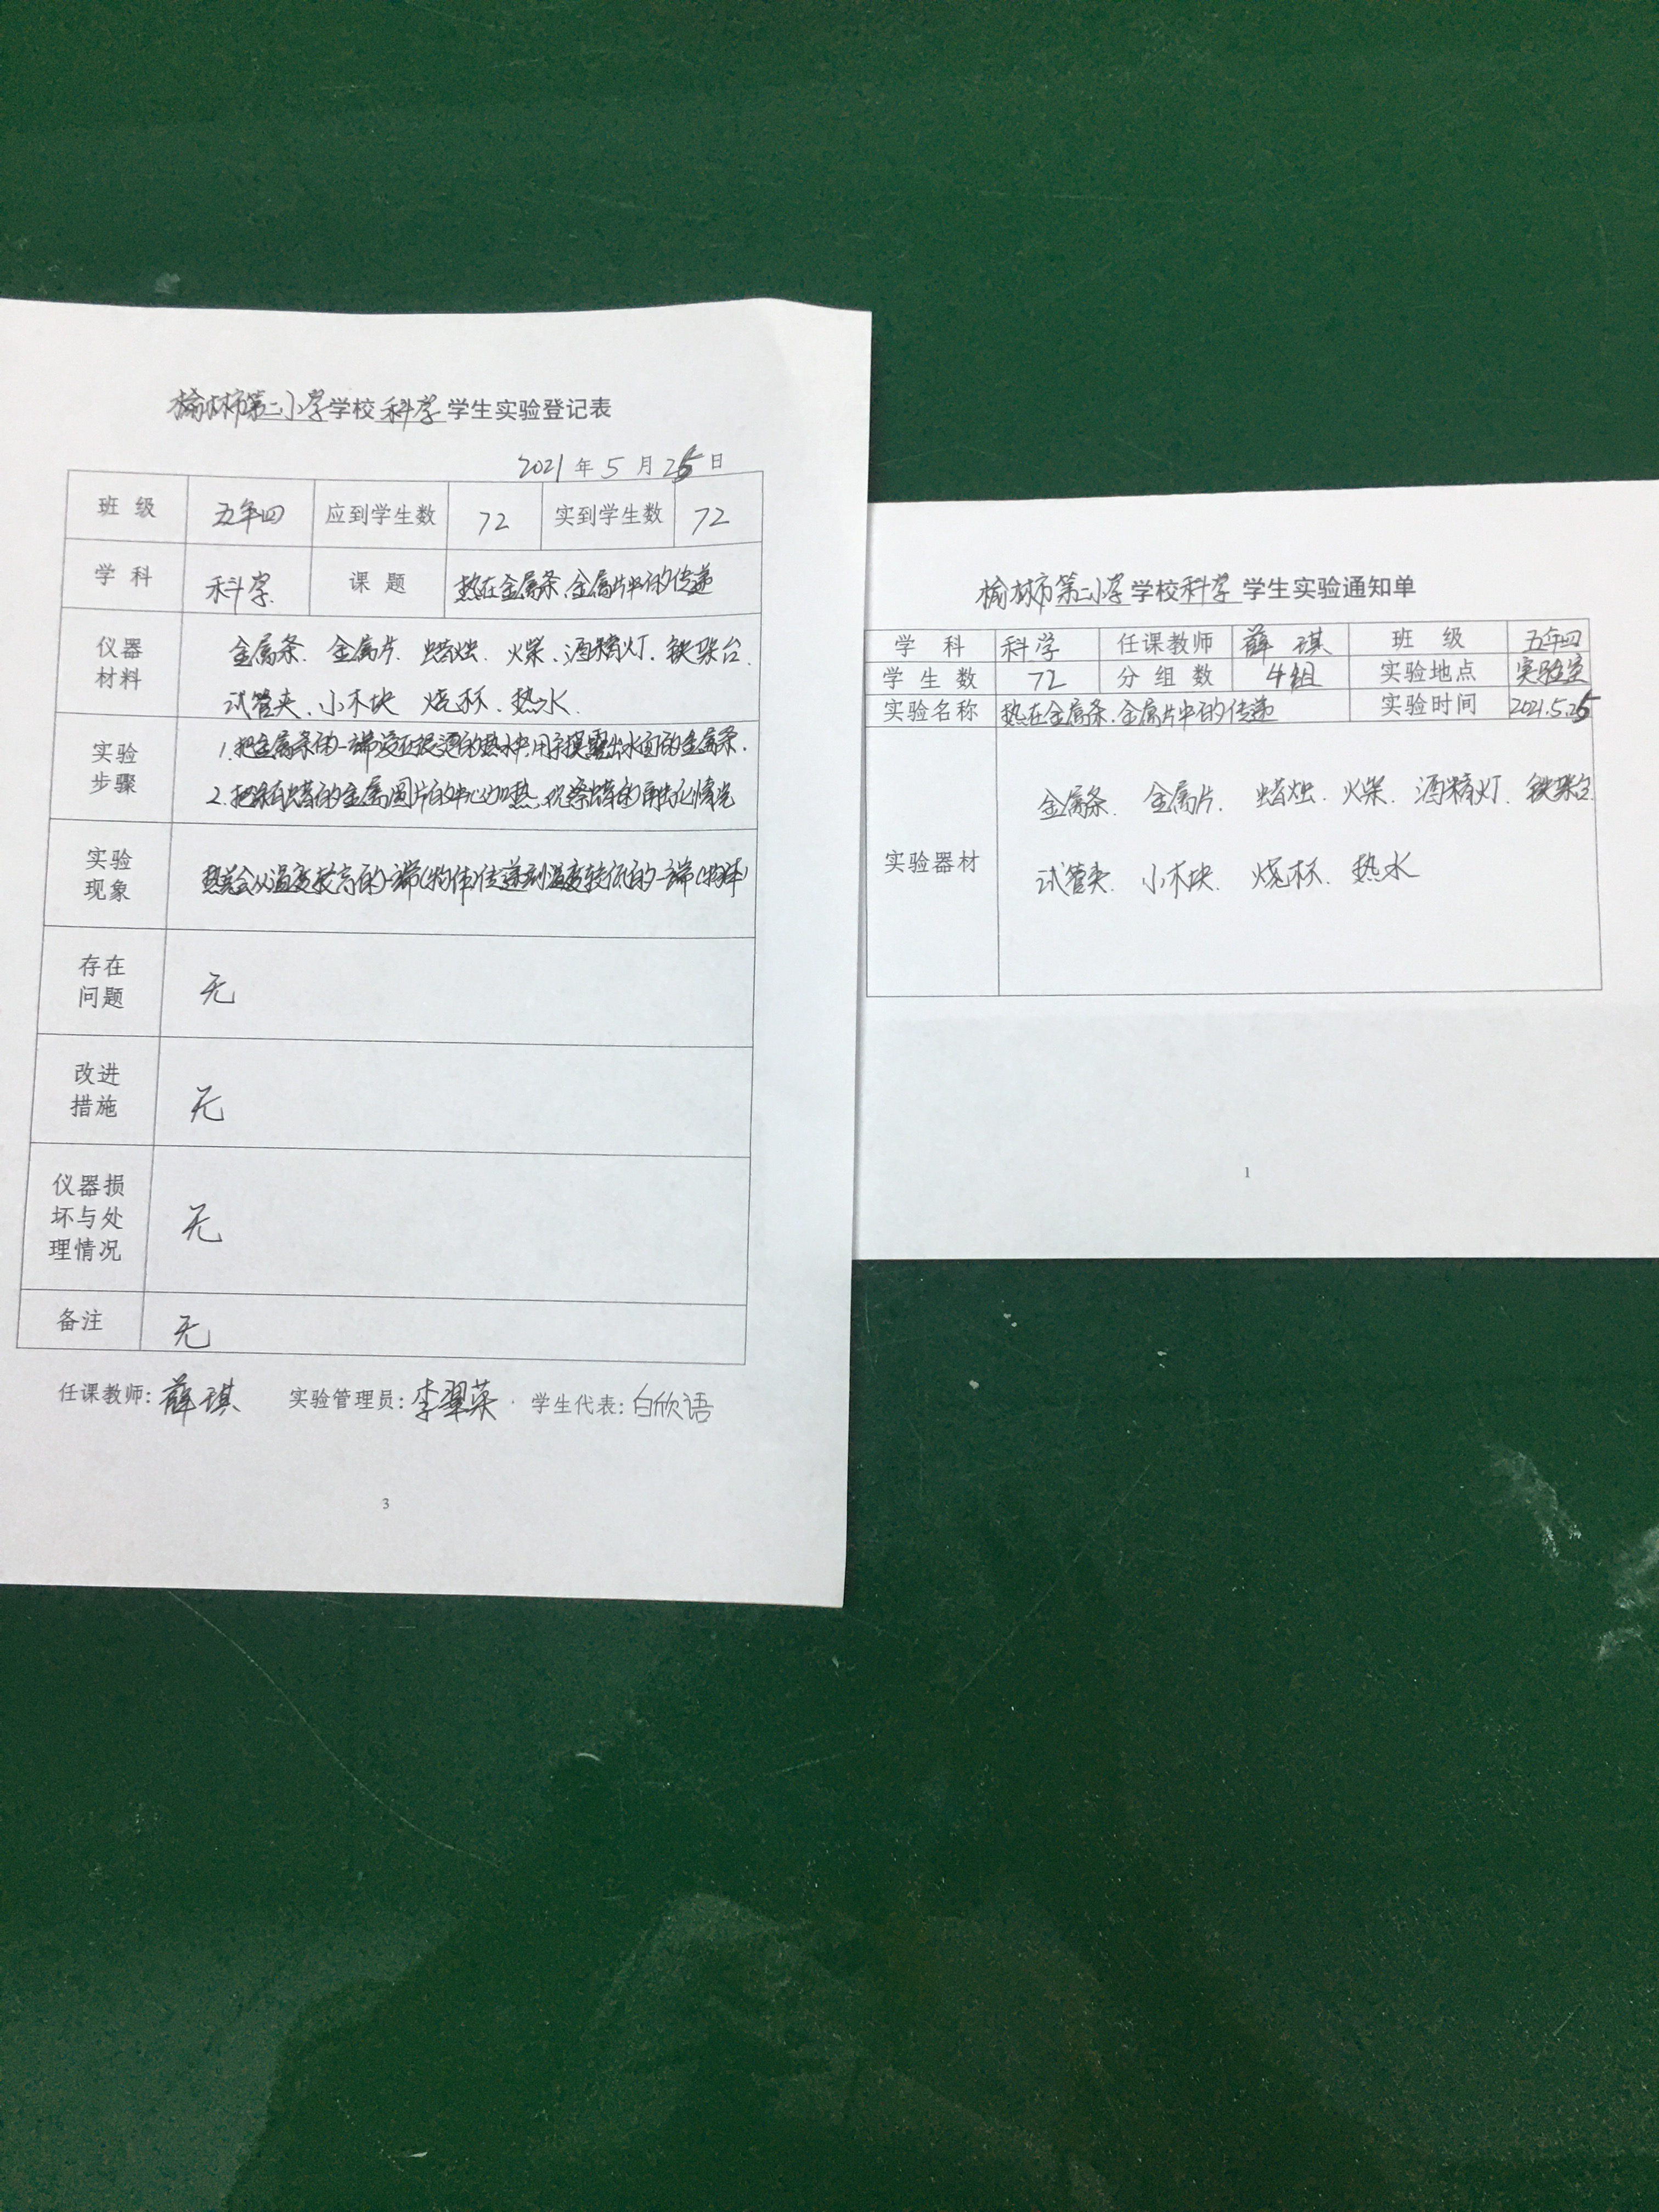 榆林市第二小学学校科学学生实验登记表
2021年5月25日
班级 五年四 应到学生数 72 实到学生数 72
学科 科学 课题 热在金属条、金属片中的传递
仪器材料 金属条、金属片、蜡烛、火柴、酒精灯、铁架台、
试管夹、小木块 烧杯、热水.
实验步骤 1.把金属条的一端浸在很烫的热水中,用手摸露出水面的金属条.
2.把涂有蜡的金属圆片的中心加热,观察蜡的熔化情况
实验现象 热会从温度较高的一端(物体)传递到温度较低的一端(物体)
存在问题 无
改进措施 无
仪器损坏与处理情况 无
备注 无
任课教师:薛琪 实验管理员:李翠英 学生代表:白欣语
3
榆林市第二小学学校科学学生实验通知单
学科 科学 任课教师 薛琪 班级 五年四
学生数 72 分组数 4组 实验地点 实验室
实验名称 热在金属条、金属片中的传递 实验时间 2021.5.25
实验器材 金属条、金属片、蜡烛、火柴、酒精灯、铁架台
试管夹、小木块、烧杯、热水
1